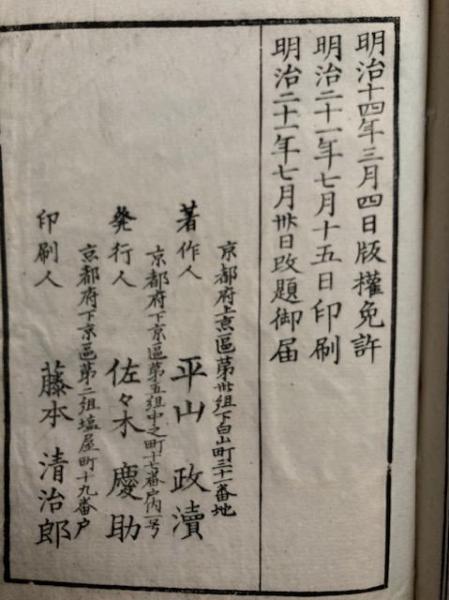 明治十四年三月四日版權免許
明治二十一年七月十五日印刷
明治二十一年七月卅日改題御届
京都府上京區第卅組下白山町三十一番地
著作人　平山　政瀆
京都府下京區第五組中之町十七番戸内一号
発行人　佐々木　慶助
京都府下京區第二組塩屋町十九番戸
印刷人　藤本　清治郎